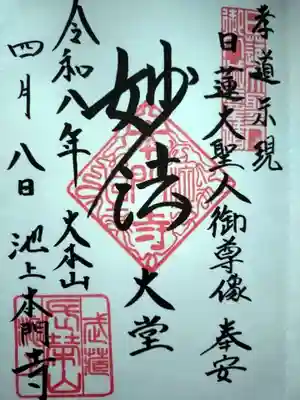 孝道示現
日蓮大聖人御尊像 奉安
妙法
大堂
令和八年 大本山
四月八日 池上本門寺